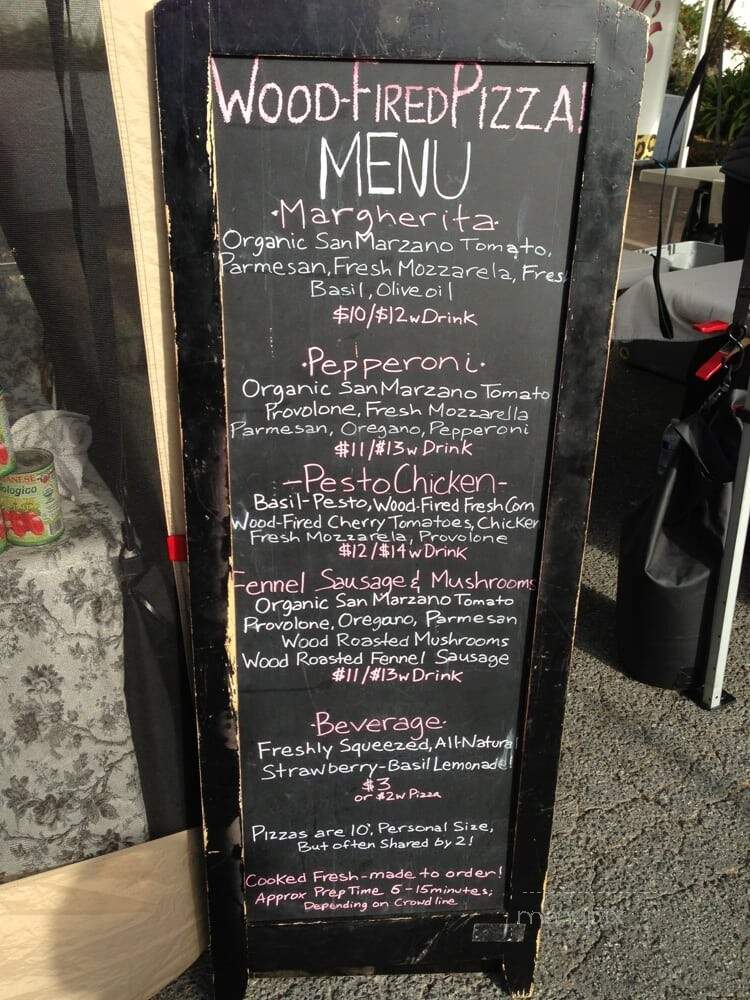 WOOD-FIRED PIZZA!
MENU
·Margherita·
Organic San Marzano Tomato,
Parmesan, Fresh Mozzarela, Fres
Basil, Olive oil
$10/$12 w Drink
·Pepperoni·
Organic San Marzano Tomato
Provolone, Fresh Mozzarella
Parmesan, Oregano, Pepperoni
$11/$13 w Drink
-Pesto Chicken-
Basil-Pesto, Wood-Fired Fresh Corn
Wood-Fired Cherry Tomatoes, Chicken
Fresh Mozzarela, Provolone
$12/$14 w Drink
Fennel Sausage & Mushrooms
Organic San Marzano Tomato
Provolone, Oregano, Parmesan
Wood Roasted Mushrooms
Wood Roasted Fennel Sausage
$11/$13 w Drink
·Beverage·
Freshly Squeezed, All-Natural
Strawberry-Basil Lemonade!
$3
or $2 w Pizza
Pizzas are 10", Personal Size,
But often Shared by 2!
Cooked Fresh-made to order!
Approx Prep Time 5-15 minutes;
Depending on Crowd line
ologico
menupix